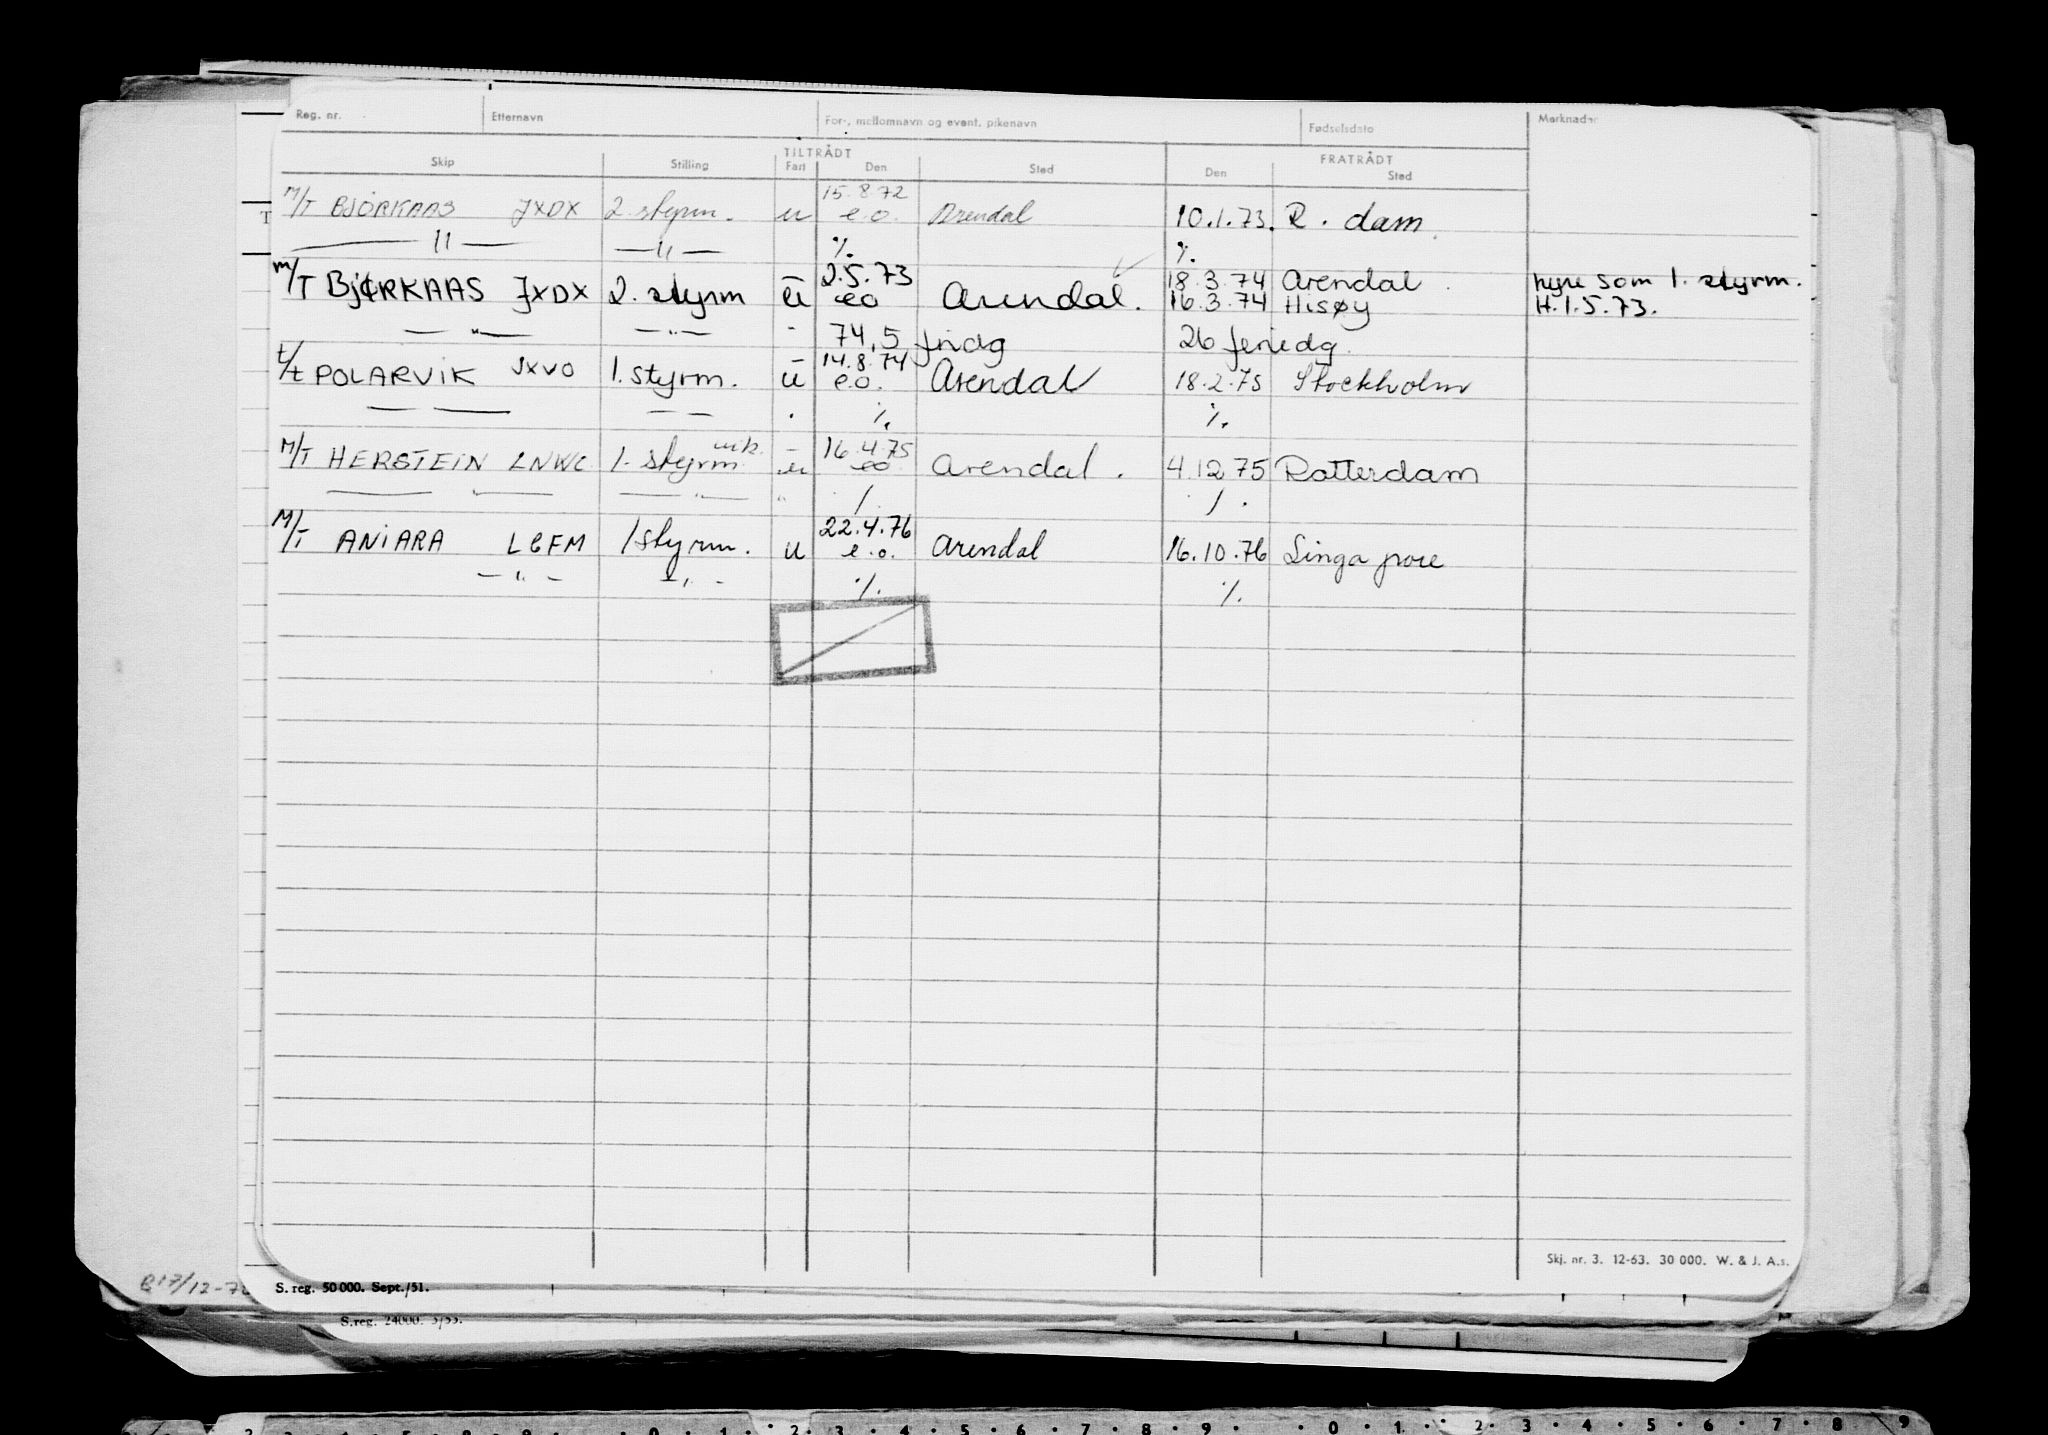 Reg. nr. Etternavn For-, mellomnavn og event. pikenavn Fødselsdato Merknader
TILTRÅDT FRATRÅDT
Skip Stilling Fart Den Sted Den Sted
15.8.72
M/T BJÖRKAAS JXDX 2. styrm. u e.o. Arendal 10.1.73. R. dam.
—— 11 —— — 11 — ⁒ ⁒
2.5.73 18.3.74 Arendal. hyre som 1. styrm.
m/T BjØRKAAS JXDX 2. styrm ū eo Arendal. 16.3.74 Hisøy H.1.5.73.
— " — — " — - 74,5 fridg 26 feriedg.
14.8.74
t/t POLARVIK JXVO 1. styrm. ū e.o. Arendal 18.2.75 Stockholm
— — — — . ⁒ ⁒
16.4.75
M/T HERSTEIN LNWC 1. styrm. ū eo. Arendal. 4.12.75 Rotterdam
— " — — " — " / / .
22.4.76
M/T ANIARA LCFM 1 styrm. u e.o. Arendal 16.10.76 Singapore
— " — — " — ⁒ ⁒
Skj. nr. 3. 12-63. 30 000. W. & J. A.s.
S. reg. 50 000. Sept./51.
S.reg. 24000. 3/53.